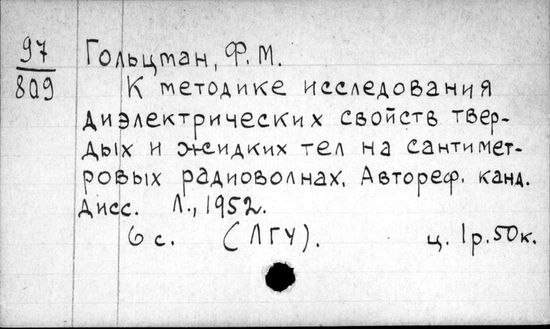 97
809
Гольцман, Ф. М.
К методике исследования
диэлектрических свойств твер-
дых и жидких тел на сантимет-
ровых радиоволнах. Автореф. канд.
Дисс. Л., 1952.
6 с. (ЛГУ). ц. 1р.50к.